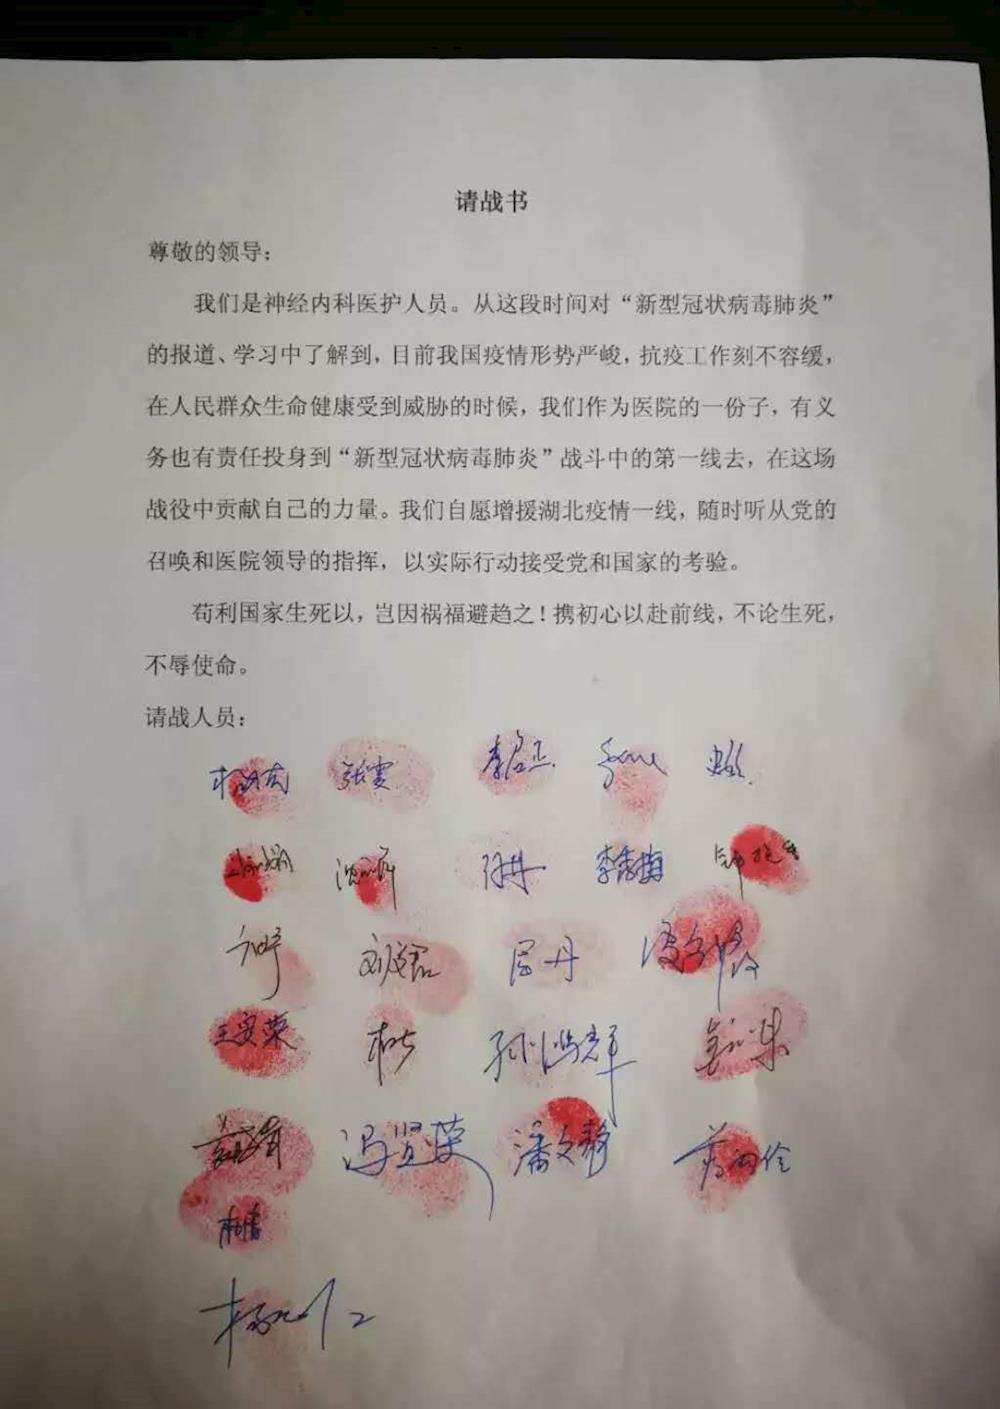 请战书
尊敬的领导：
我们是神经内科医护人员。从这段时间对“新型冠状病毒肺炎”
的报道、学习中了解到，目前我国疫情形势严峻，抗疫工作刻不容缓，
在人民群众生命健康受到威胁的时候，我们作为医院的一份子，有义
务也有责任投身到“新型冠状病毒肺炎”战斗中的第一线去，在这场
战役中贡献自己的力量。我们自愿增援湖北疫情一线，随时听从党的
召唤和医院领导的指挥，以实际行动接受党和国家的考验。
苟利国家生死以，岂因祸福避趋之！携初心以赴前线，不论生死，
不辱使命。
请战人员：
张雯
李秀梅
王安荣 孙鸿辉
冯贤荣 潘文静